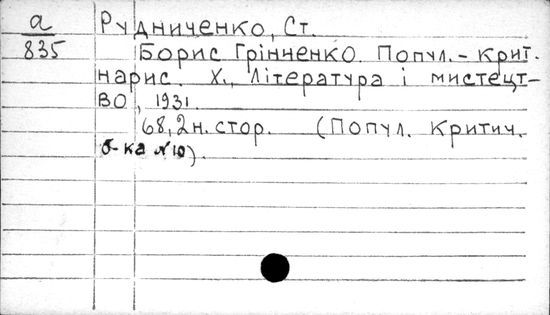 а
835
Рудниченко, Ст.
Борис Грінченко. Попул.-крит.
нарис. Х., Література і мистецт-
во, 1931.
68, 2 н. стор. (Попул. критич.
б-ка №10).